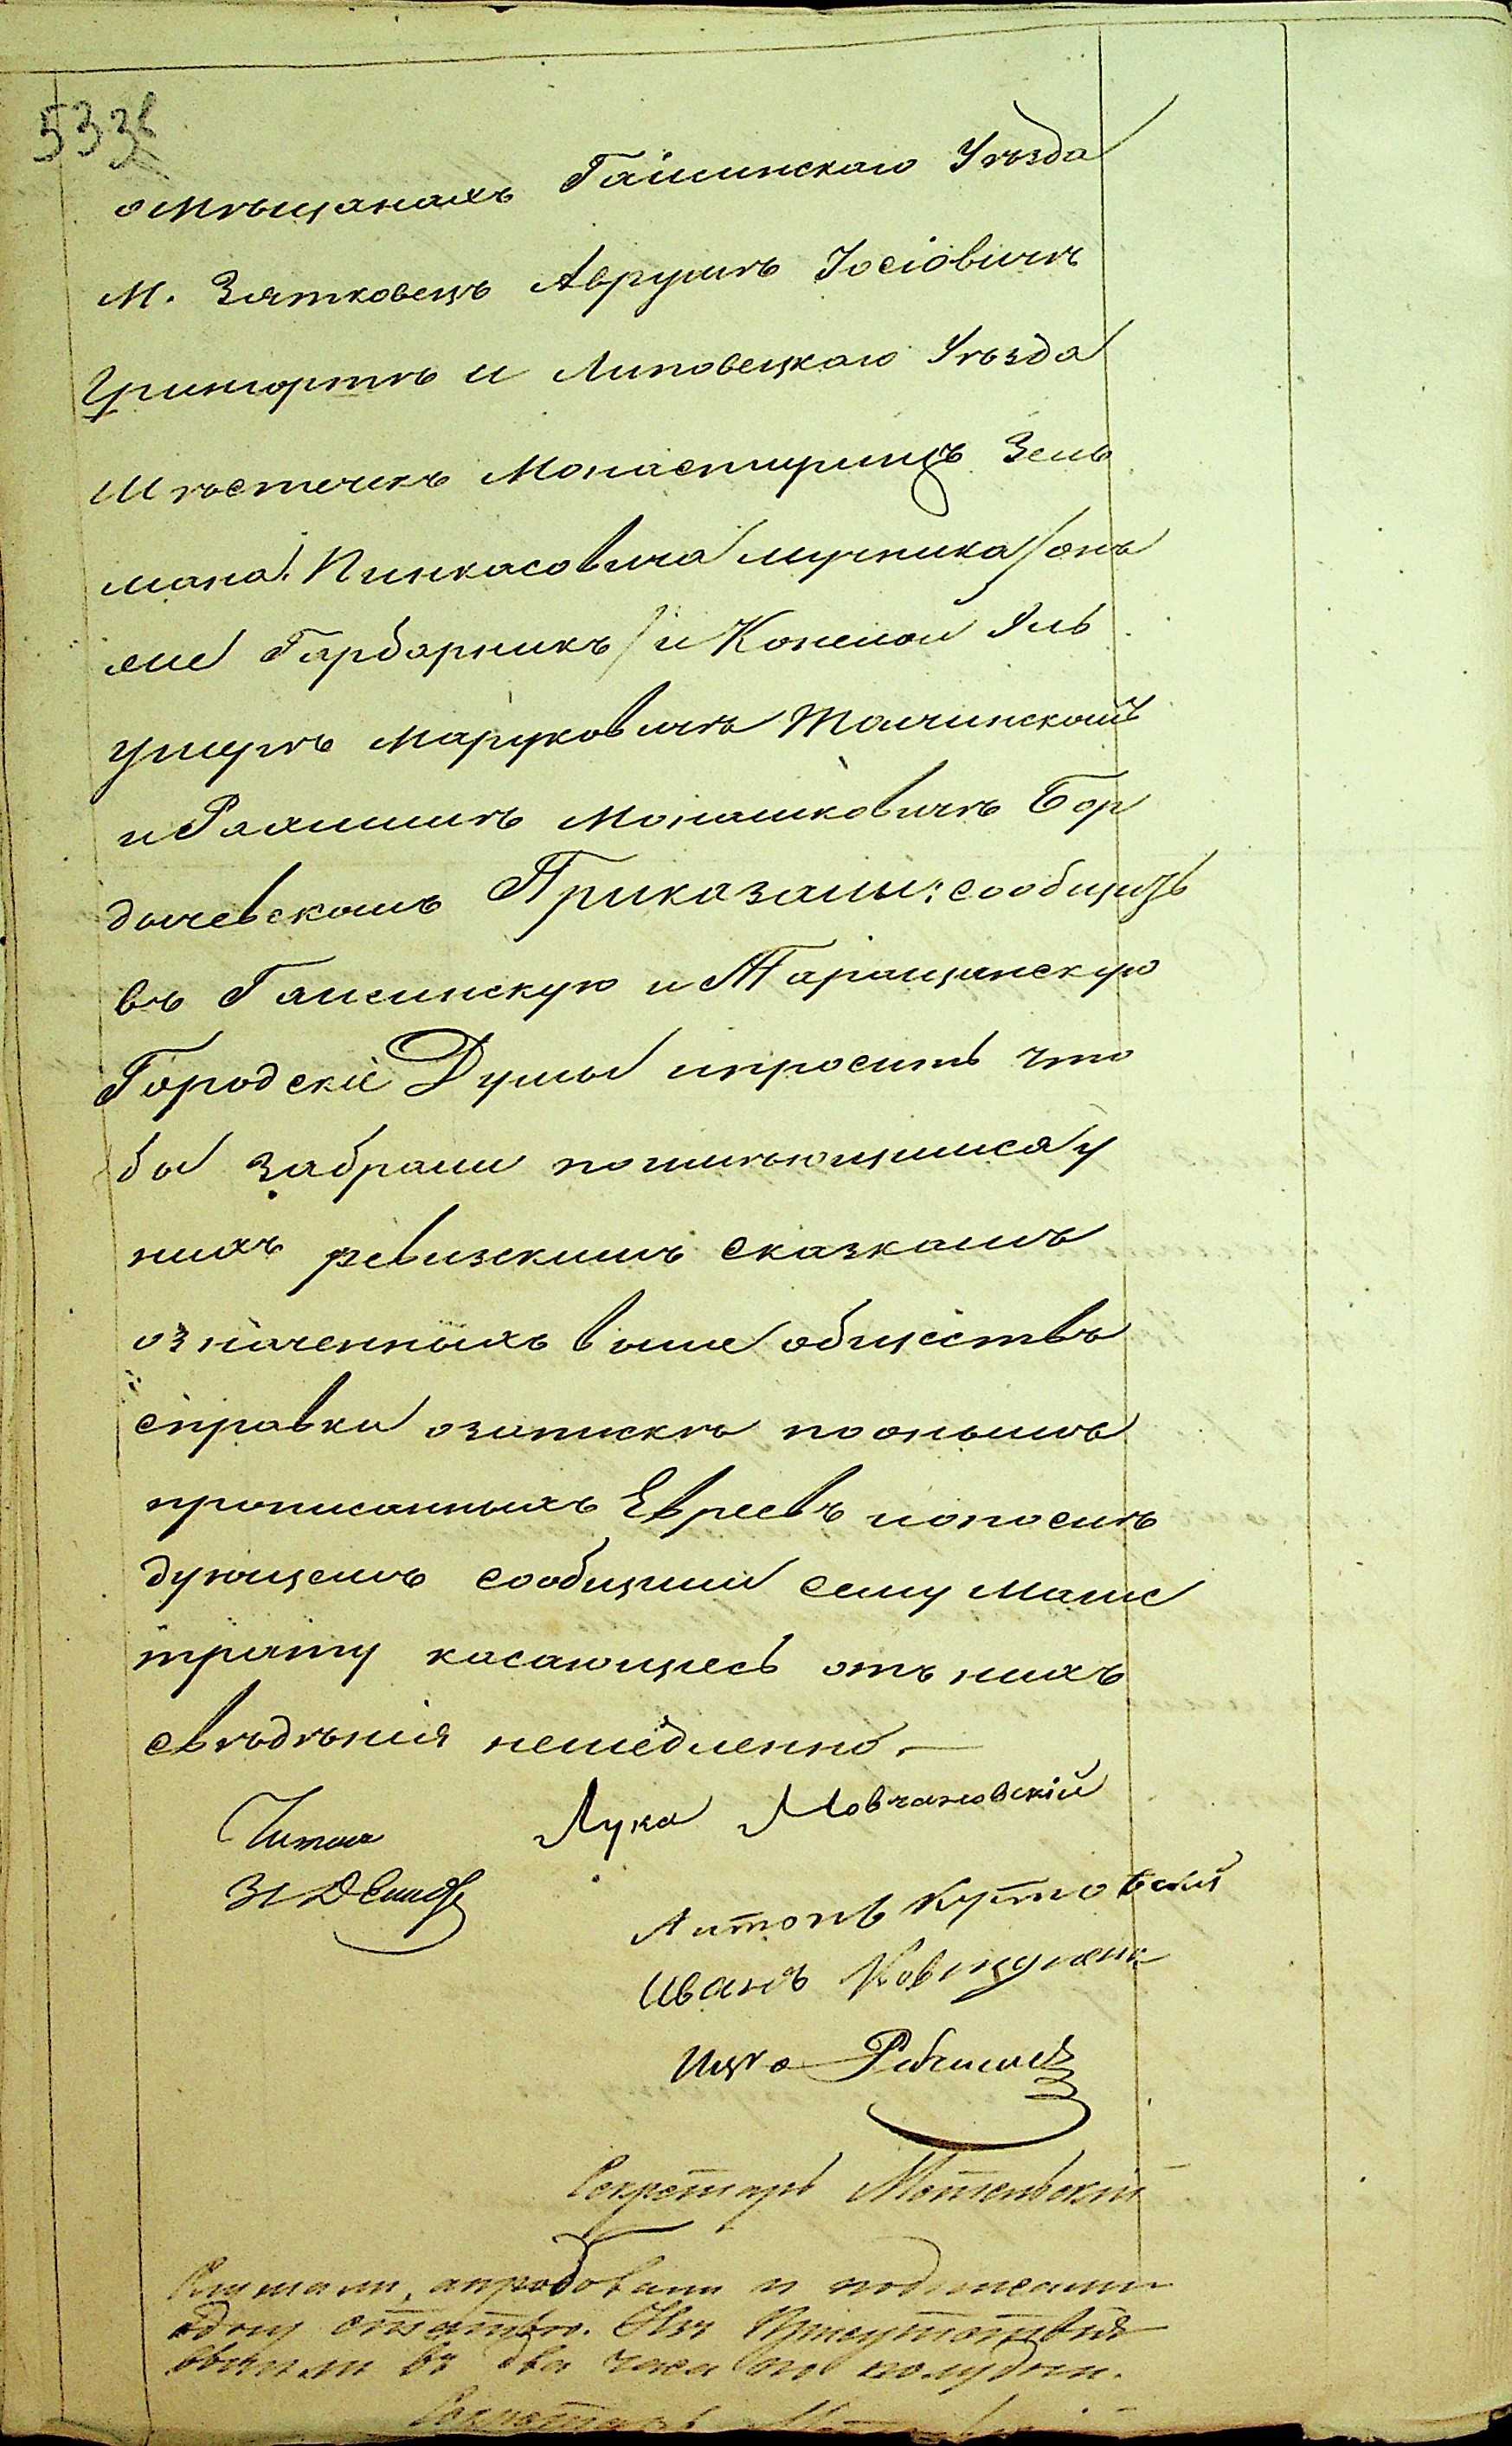 533
о Мѣщанахъ Гайсинскаго Уѣзда
М. Зятковецъ Аврумѣ Іосіовичѣ
и Липовецкаго Уѣзда
Мѣстечекъ Монастирищъ Зель
мана Пинкасовича мучника/онъ
же Гарбарникъ/и Конелой
Маруковичѣ
и Мошковичѣ Бер
дичевскомъ Приказали: сообщить
въ Гайсинскую и Таращанскую
Городскіе Думы и просить что
бы забрали по имѣющимися у
нихъ ревизскимъ сказкамъ
означенныхъ выше обществъ
справки о запискѣ по онымъ
прописанныхъ Евреевъ и о послѣ
дующемъ сообщили сему Магис
трату касающіесь отъ нихъ
свѣдѣнія немедленно.—
Читал
Лука Мовчановскій
Антонъ Кутовский
Иванъ
Ицко
Секретарь
Слушали, апробовали и подписали
одну статью. Изъ Присутствія
вышли въ два часа по полудни.
Секретарь